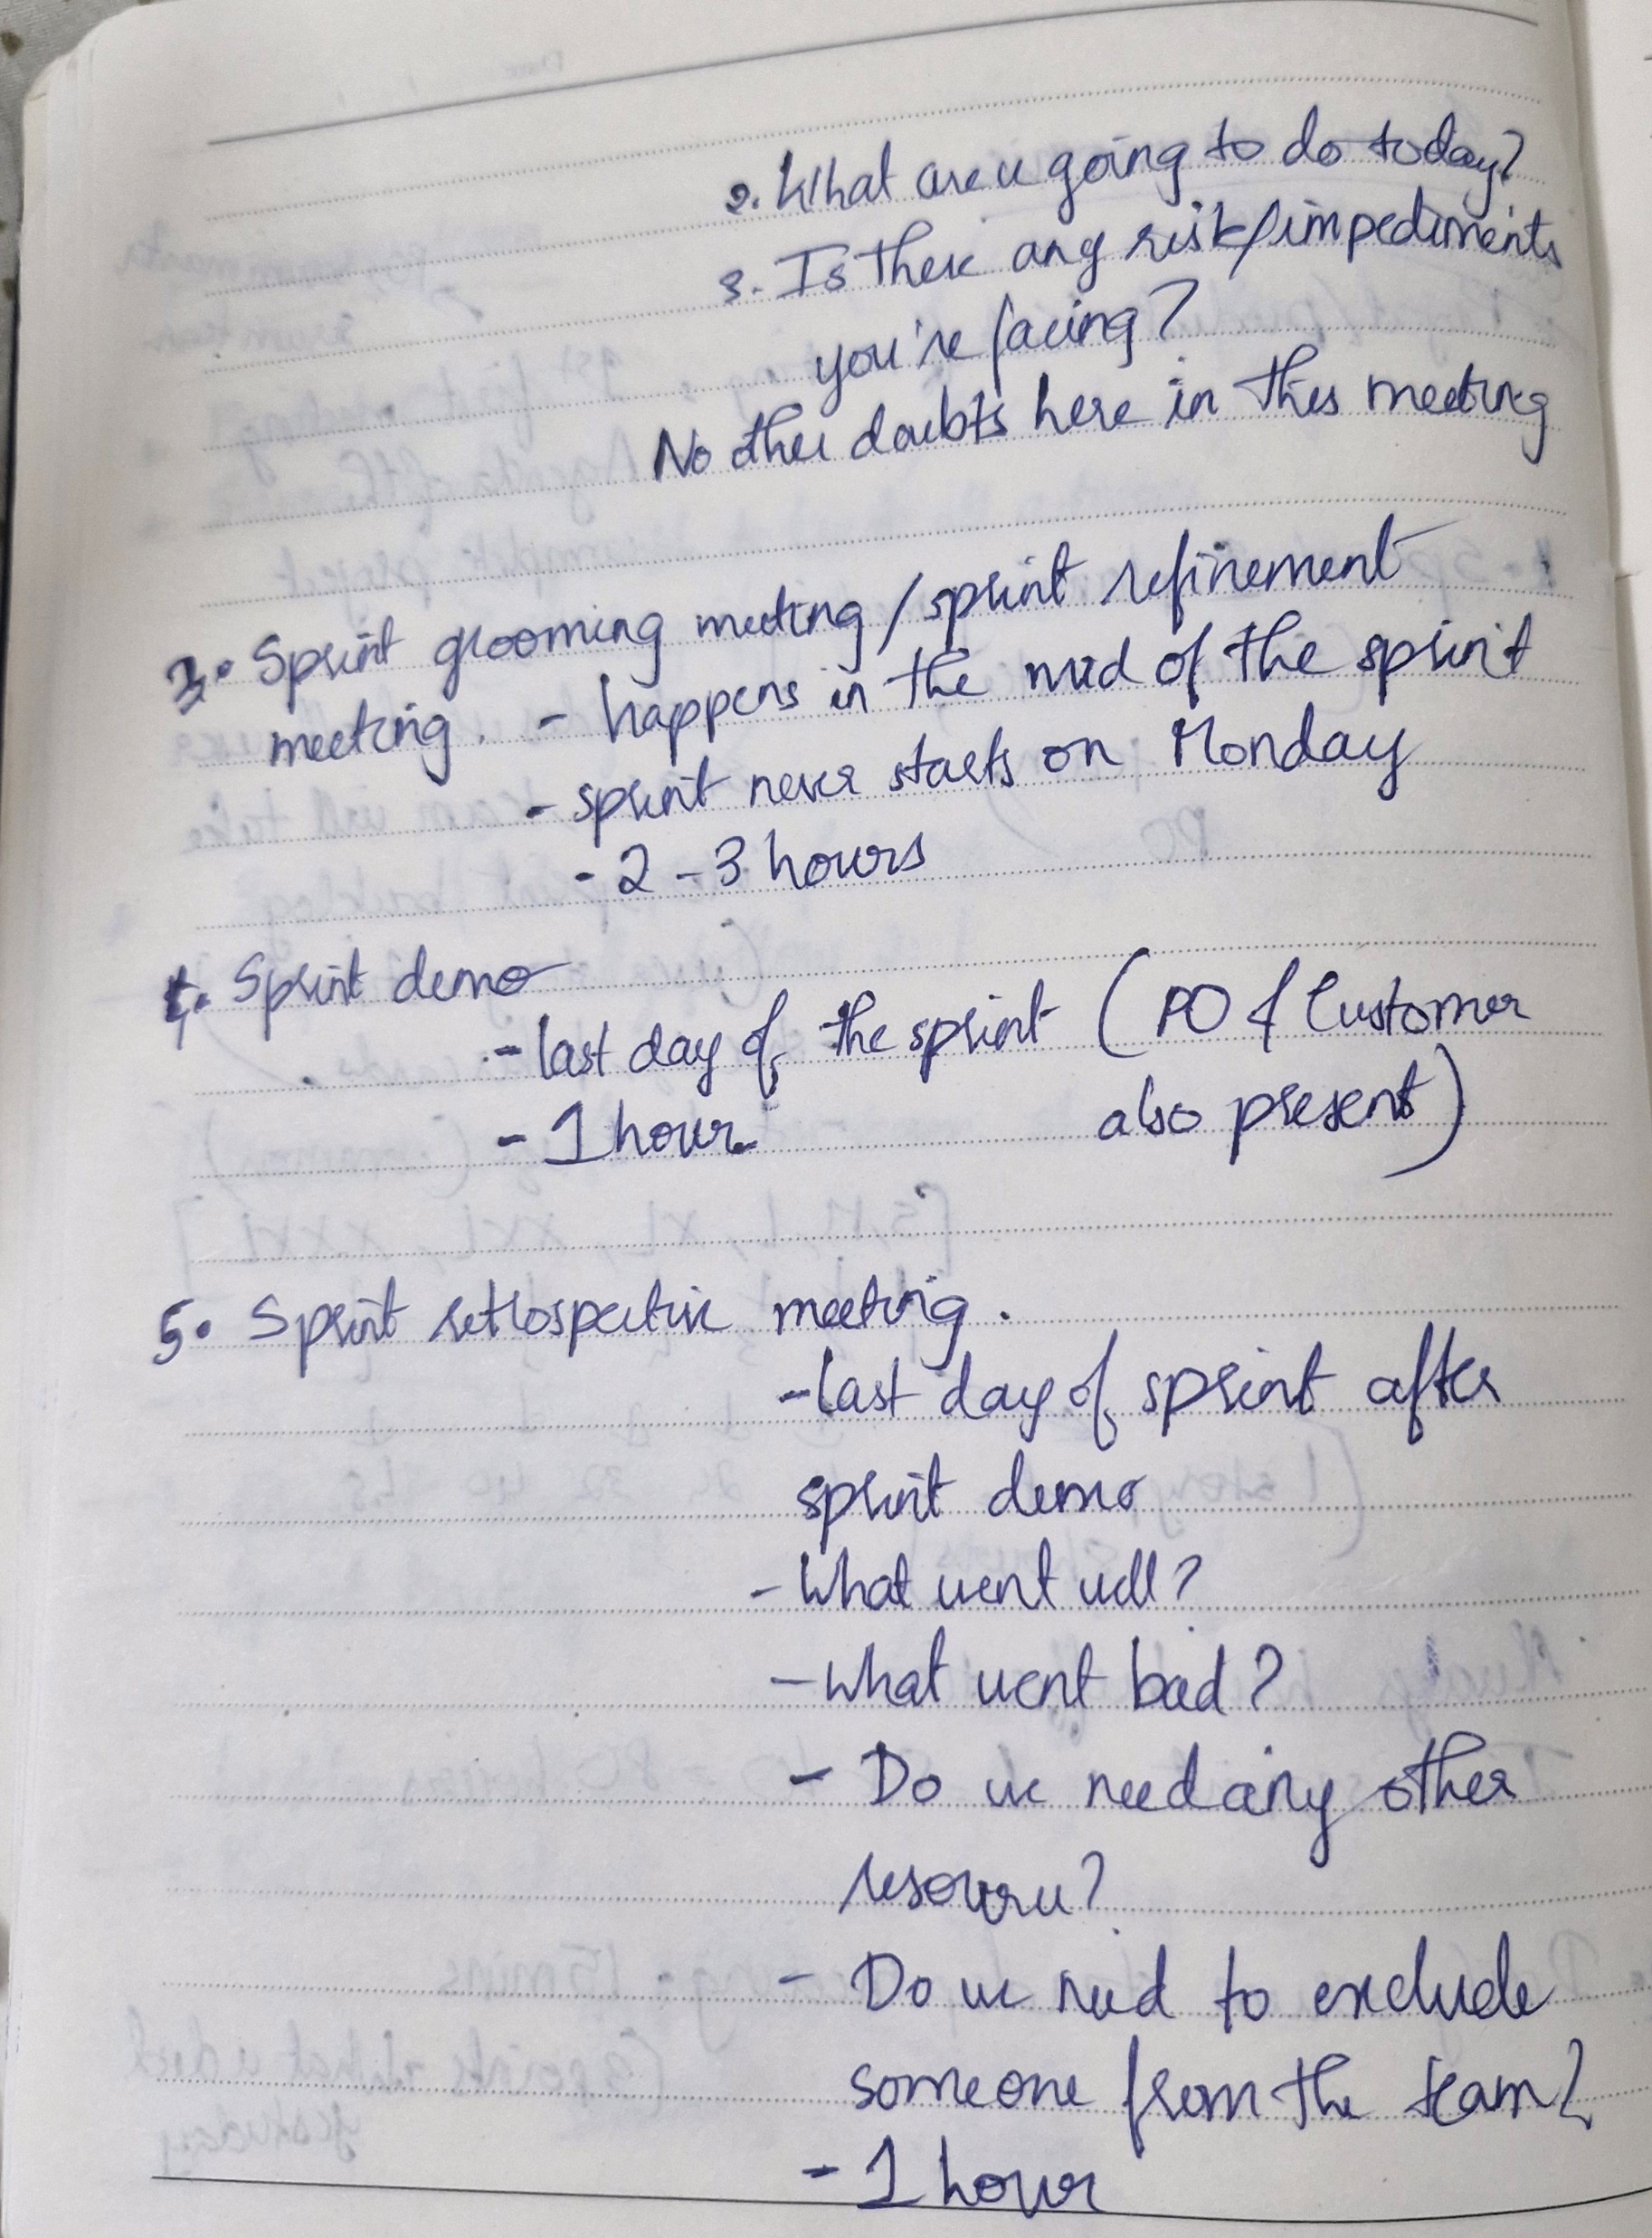 2. What are u going to do today?
3. Is there any risk/impediments
you're facing?
No other doubts here in this meeting
3. Sprint grooming meeting / sprint refinement
meeting. - happens in the mid of the sprint
- sprint never starts on Monday
- 2 - 3 hours
4. Sprint demo
- last day of the sprint (PO & Customer
- 1 hour. also present)
5. Sprint retrospective meeting.
- last day of sprint after
sprint demo
- What went well?
- What went bad?
- Do we need any other
resource?
- Do we need to exclude
someone from the team?
- 1 hour